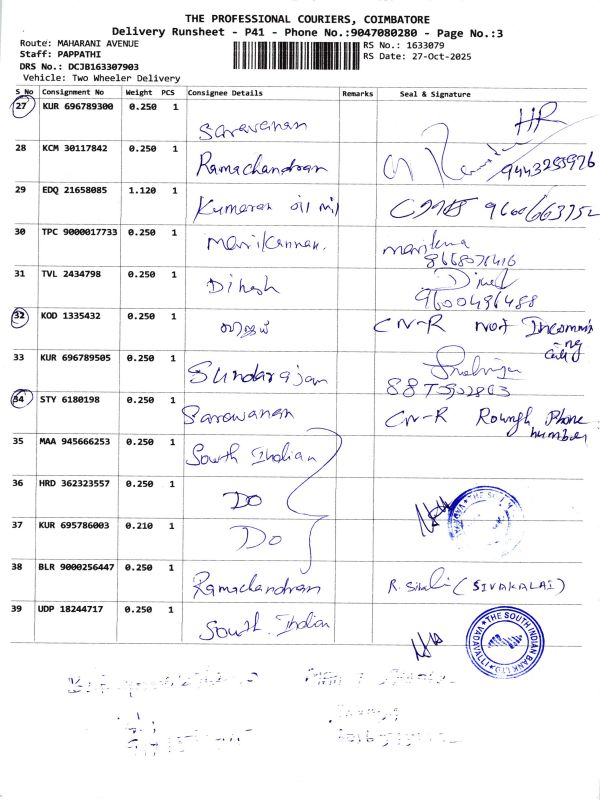 THE PROFESSIONAL COURIERS, COIMBATORE
Delivery Runsheet - P41 - Phone No.:9047080280 - Page No.:3
Route: MAHARANI AVENUE
RS No.: 1633079
Staff: PAPPATHI
RS Date: 27-Oct-2025
DRS No.: DCJB163307903
Vehicle: Two Wheeler Delivery
S No Consignment No Weight PCS Consignee Details Remarks Seal & Signature
27 KUR 696789300 0.250 1 Saravanan HR
28 KCM 30117842 0.250 1 Ramachandran
29 EDQ 21658085 1.120 1 Kumaran oil mil
30 TPC 9000017733 0.250 1 Marikannan.
31 TVL 2434798 0.250 1 Dinesh 9600496488
32 KOD 1335432 0.250 1 CN-R Not Incomming Call
33 KUR 696789505 0.250 1 Sundarajan
34 STY 6180198 0.250 1 Sarawanan CN-R Rowngh Phone number
35 MAA 945666253 0.250 1 South Indian
36 HRD 362323557 0.250 1 Do
37 KUR 695786003 0.210 1 Do
38 BLR 9000256447 0.250 1 Ramachandran (SIVAKALAI)
39 UDP 18244717 0.250 1 South Indian
THE SOUTH INDIAN BANK LTD
VADAVALLI